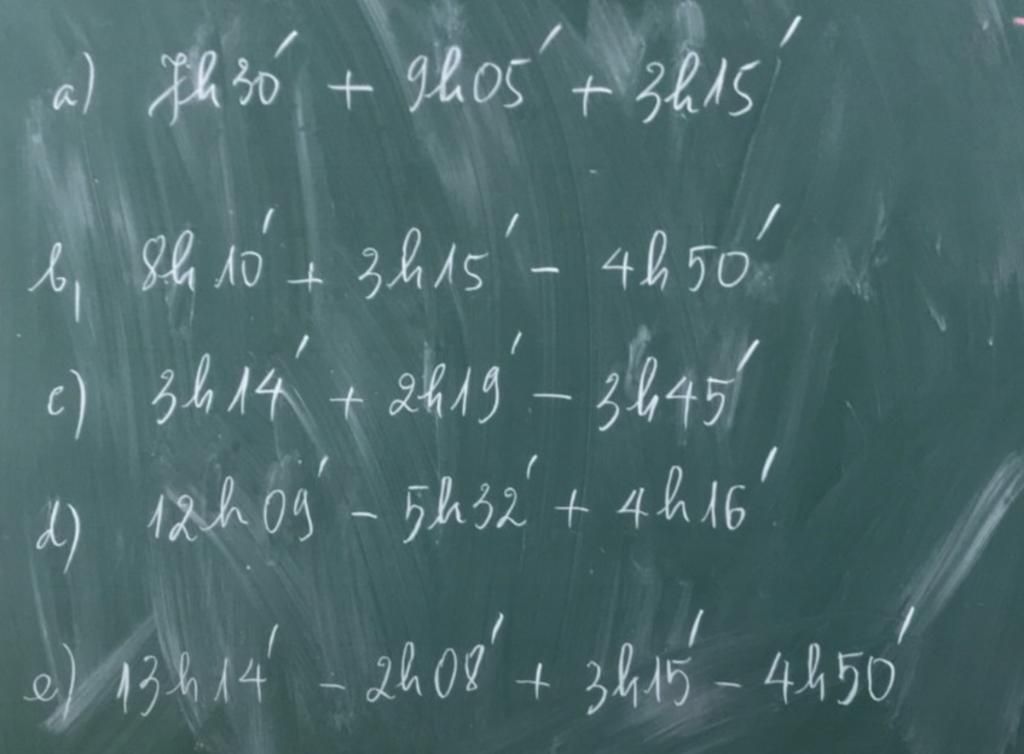 a) 7h30' + 9h05' + 3h15'
b, 8h10' + 3h15' - 4h50'
c) 3h14' + 2h19' - 3h45'
d) 12h09' - 5h32' + 4h16'
e) 13h14' - 2h08' + 3h15' - 4h50'